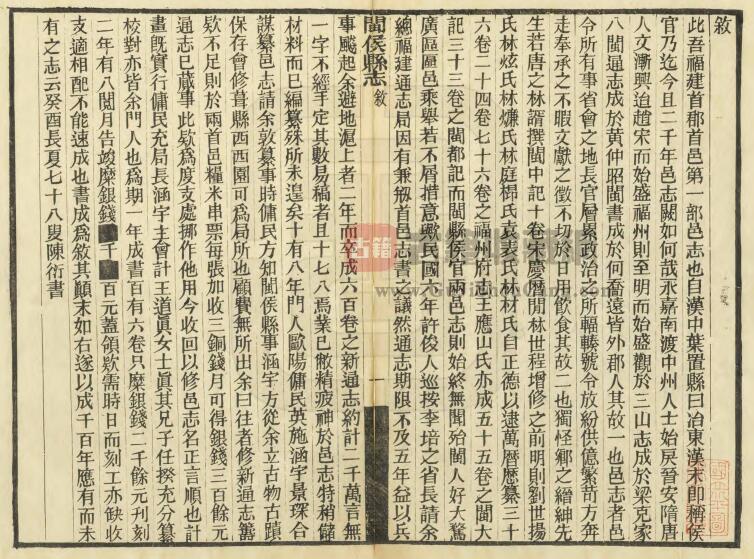 敘
此吾福建首郡首邑第一部邑志也自漢中葉置縣曰冶東漢末卽稱侯
官乃迄今且二千年邑志闕如何哉永嘉南渡中州人士始屍晉安隋唐
人文漸興迨趙宋而始盛福州則至明而始盛觀於三山志成於梁克家
八閩通志成於黃仲昭閩書成於何喬遠皆外郡人其故一也邑志者邑
令所有事省會之地長官層累政治之所輻輳號令放紛供億繁苛方奔
走奉承之不暇文獻之徵不切於日用飲食其故二也獨怪鄉之縉紳先
生若唐之林諝撰閩中記十卷宋慶曆閒林世程增修之前明則劉世揚
氏林炫氏林㷆氏林庭㭿氏袁表氏林材氏自正德以逮萬曆歷纂三十
六卷二十四卷七十六卷之福州府志王應山氏亦成五十五卷之閩大
記三十三卷之閩都記而閩縣侯官兩邑志則始終無聞殆閩人好大騖
廣區區邑乘舉若不屑措意歟民國九年許俊人巡按李培之省長請余
總福建通志局因有兼刱首邑志書之議然通志期限不及五年益以兵
閩侯縣志 敘
一
事颷起余避地滬上者二年而卒成六百卷之新通志約計二千萬言無
一字不經手定其數易稿者且十七八焉業已敝精疲神於邑志特稍儲
材料而已編纂殊所未遑矣十有八年門人歐陽傭民英施涵宇景琛合
謀纂邑志請余敦纂事時傭民方知閩侯縣事涵宇方從余立古物古蹟
保存會修葺縣西西園可爲局所也顧費無所出余曰往者修新通志籌
欵不足則於兩首邑糧米串票每張加收三銅錢月可得銀錢三百餘元
通志已蕆事此欵爲度支處挪作他用今收回以修邑志名正言順也計
畫旣實行傭民充局長涵宇主會計王道真女士眞其兄子任揆充分纂
校對亦皆余門人也爲期一年成書百有六卷只糜銀錢二千餘元刋刻
二年有八閱月告竣糜銀錢 千 百元蓋領欵需時日而刻工亦缺收
支適相配不能速成也書成爲敘其顛末如右遂以成千百年應有而未
有之志云癸酉長夏七十八叟陳衍書
古籍